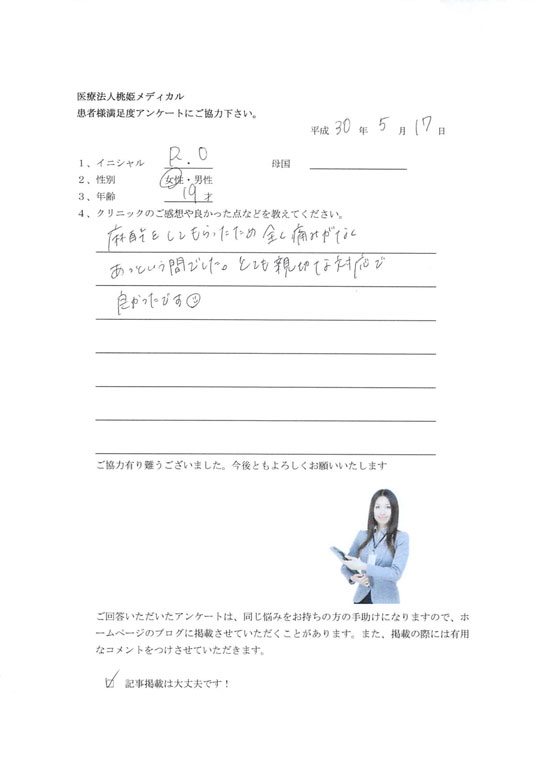 医療法人桃姫メディカル
患者様満足度アンケートにご協力下さい。
平成 30 年 5 月 17 日
1、イニシャル R.O 母国
2、性別 女性・男性
3、年齢 19 才
4、クリニックのご感想や良かった点などを教えてください。
麻酔をしてもらったため全く痛みがなく
あっという間でした。とても親切な対応で
良かったです☺
ご協力有り難うございました。今後ともよろしくお願いいたします
ご回答いただいたアンケートは、同じ悩みをお持ちの方の手助けになりますので、ホ
ームページのブログに掲載させていただくことがあります。また、掲載の際には有用
なコメントをつけさせていただきます。
☑ 記事掲載は大丈夫です！